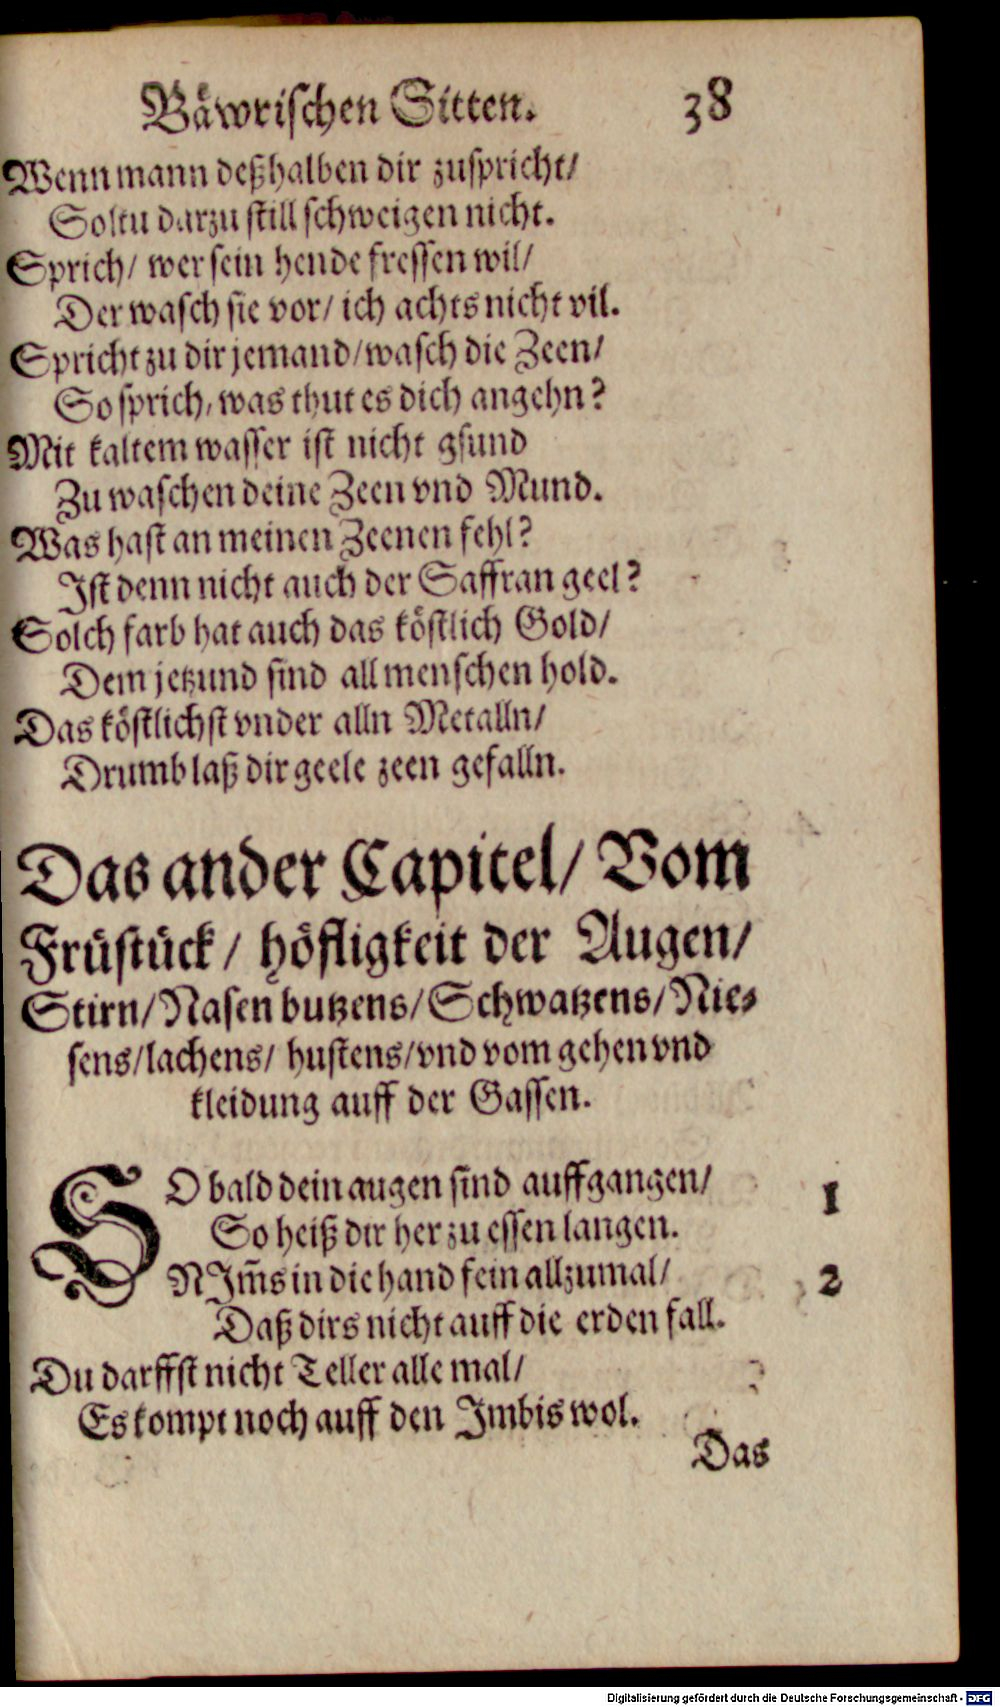 Bäwrischen Sitten. 38
Wenn mann deßhalben dir zuspricht/
Soltu darzu still schweigen nicht.
Sprich/ wer sein hende fressen wil/
Der wasch sie vor/ ich achts nicht vil.
Spricht zu dir jemand/ wasch die Zeen/
So sprich, was thut es dich angehn?
Mit kaltem wasser ist nicht gsund
Zu waschen deine Zeen vnd Mund.
Was hast an meinen Zeenen fehl?
Ist denn nicht auch der Saffran geel?
Solch farb hat auch das köstlich Gold/
Dem jetzund sind all menschen hold.
Das köstlichst vnder alln Metalln/
Drumb laß dir geele zeen gefalln.
Das ander Capitel/ Vom
Früstück/ höfligkeit der Augen/
Stirn/ Nasen butzens/ Schwatzens/ Nie-
sens/ lachens/ hustens/ vnd vom gehen vnd
kleidung auff der Gassen.
SO bald dein augen sind auffgangen/ 1
So heiß dir her zu essen langen.
NIm̃s in die hand fein allzumal/ 2
Daß dirs nicht auff die erden fall.
Du darffst nicht Teller alle mal/
Es kompt noch auff den Imbis wol.
Das
Digitalisierung gefördert durch die Deutsche Forschungsgemeinschaft - DFG